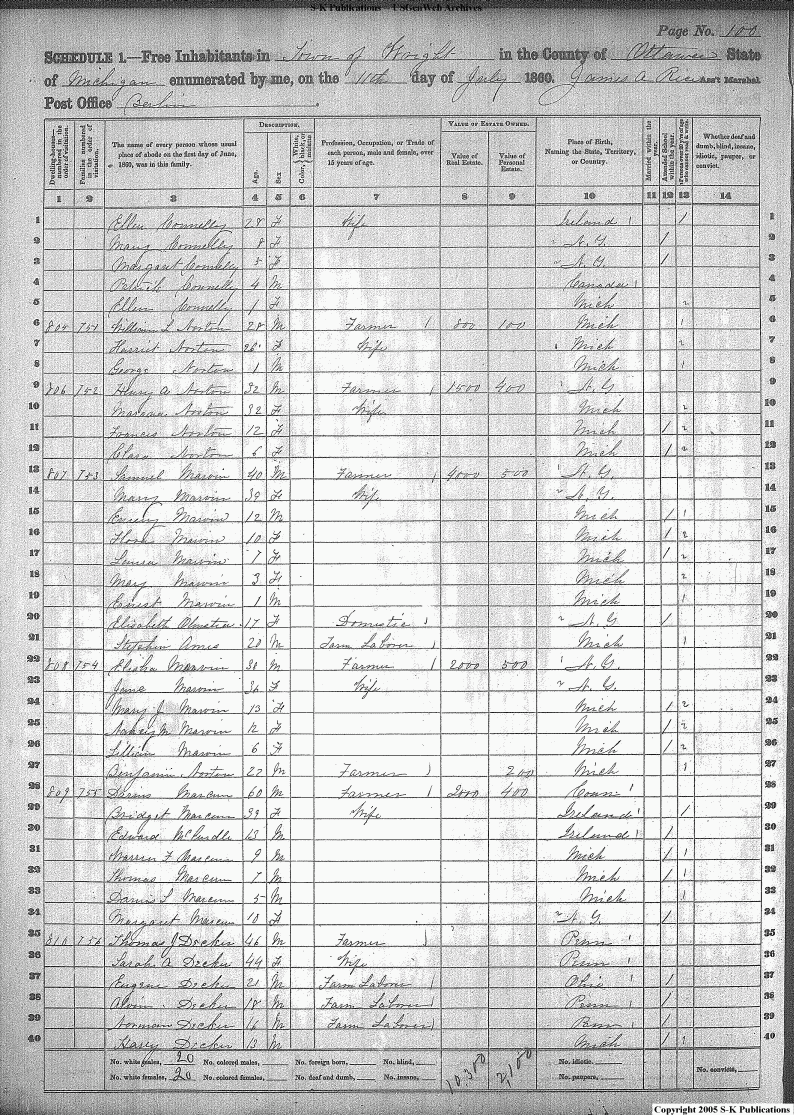 S-K Publications - USGenWeb Archives
Page No. 100
SCHEDULE 1.—Free Inhabitants in Town of Wright in the County of Ottawa State
of Michigan enumerated by me, on the 11th day of July 1860. James A Rice Ass't Marshal
Post Office Berlin
Dwelling-houses—numbered in the order of visitation.
Families numbered in the order of visitation.
The name of every person whose usual place of abode on the first day of June, 1860, was in this family.
DESCRIPTION.
Age.
Sex
Color, White, black, or mulatto
Profession, Occupation, or Trade of each person, male and female, over 15 years of age.
VALUE OF ESTATE OWNED.
Value of Real Estate.
Value of Personal Estate.
Place of Birth, Naming the State, Territory, or Country.
Married within the year.
Attended School within the year.
Whether deaf and dumb, blind, insane, idiotic, pauper, or convict.
1 2 3 4 5 6 7 8 9 10 11 12 13 14
1 Ellen Connelly 28 F Wife Ireland 1 / 1
2 Mary Connelly 8 F " N.Y. / 2
3 Margaret Connelly 5 F " N.Y. / 3
4 Patrick Connelly 4 M Canada 1 4
5 Ellen Connelly 1 F Mich 2 5
6 805 751 William L Norton 28 M Farmer 1 800 100 Mich 1 6
7 Harriet Norton 26 F Wife Mich 2 7
8 George Norton 1 M Mich 1 8
9 806 752 Henry A Norton 32 M Farmer 1 1500 400 N.Y. 9
10 Norton 32 F Wife Mich 2 10
11 Francis Norton 12 F Mich / 2 11
12 Clara Norton 6 F Mich / 2 12
13 807 753 Samuel Marvin 40 M Farmer 1 4000 500 N.Y. 13
14 Mary Marvin 39 F Wife N.Y. 14
15 Marvin 12 M Mich / 1 15
16 Flora Marvin 10 F Mich / 2 16
17 Louisa Marvin 7 F Mich / 2 17
18 May Marvin 3 F Mich 2 18
19 Ernest Marvin 1 M Mich 1 19
20 Elisabeth 17 F Domestic N.Y. / 20
21 Stephen Ames 20 M Farm Laborer Mich 1 21
22 808 754 Elisha Marvin 38 M Farmer 1 2000 500 N.Y. 22
23 Jane Marvin 36 F Wife N.Y. 23
24 Mary J. Marvin 13 F Mich / 2 24
25 Nancy M Marvin 12 F Mich / 2 25
26 Lillian Marvin 6 F Mich / 2 26
27 Benjamin Norton 22 M Farmer 200 Mich 1 27
28 809 755 Marcum 60 M Farmer 1 2000 400 Conn 1 28
29 Bridget Marcum 39 F Wife Ireland / 29
30 Edward McCardle 13 M Ireland 1 / 30
31 Warren F Marcum 9 M Mich / 1 31
32 Thomas Marcum 7 M Mich / 1 32
33 L Marcum 5 M Mich 1 33
34 Margaret Marcum 10 F N.Y. / 34
35 810 756 Thomas J Decker 46 M Farmer Penn 1 35
36 Sarah A Decker 44 F Wife Penn 1 36
37 Eugene Decker 21 M Farm Laborer Ohio 1 / 37
38 Alvin Decker 18 M Farm Laborer Penn 1 / 38
39 Norman Decker 16 M Farm Laborer Penn 1 / 39
40 Harey Decker 13 M Mich / 1 40
No. white males, 20 No. colored males, No. foreign born, No. blind, 10,300 2,100 No. idiotic,
No. white females, 20 No. colored females, No. deaf and dumb, No. insane, No. paupers, No. convicts,
Copyright 2005 S-K Publications